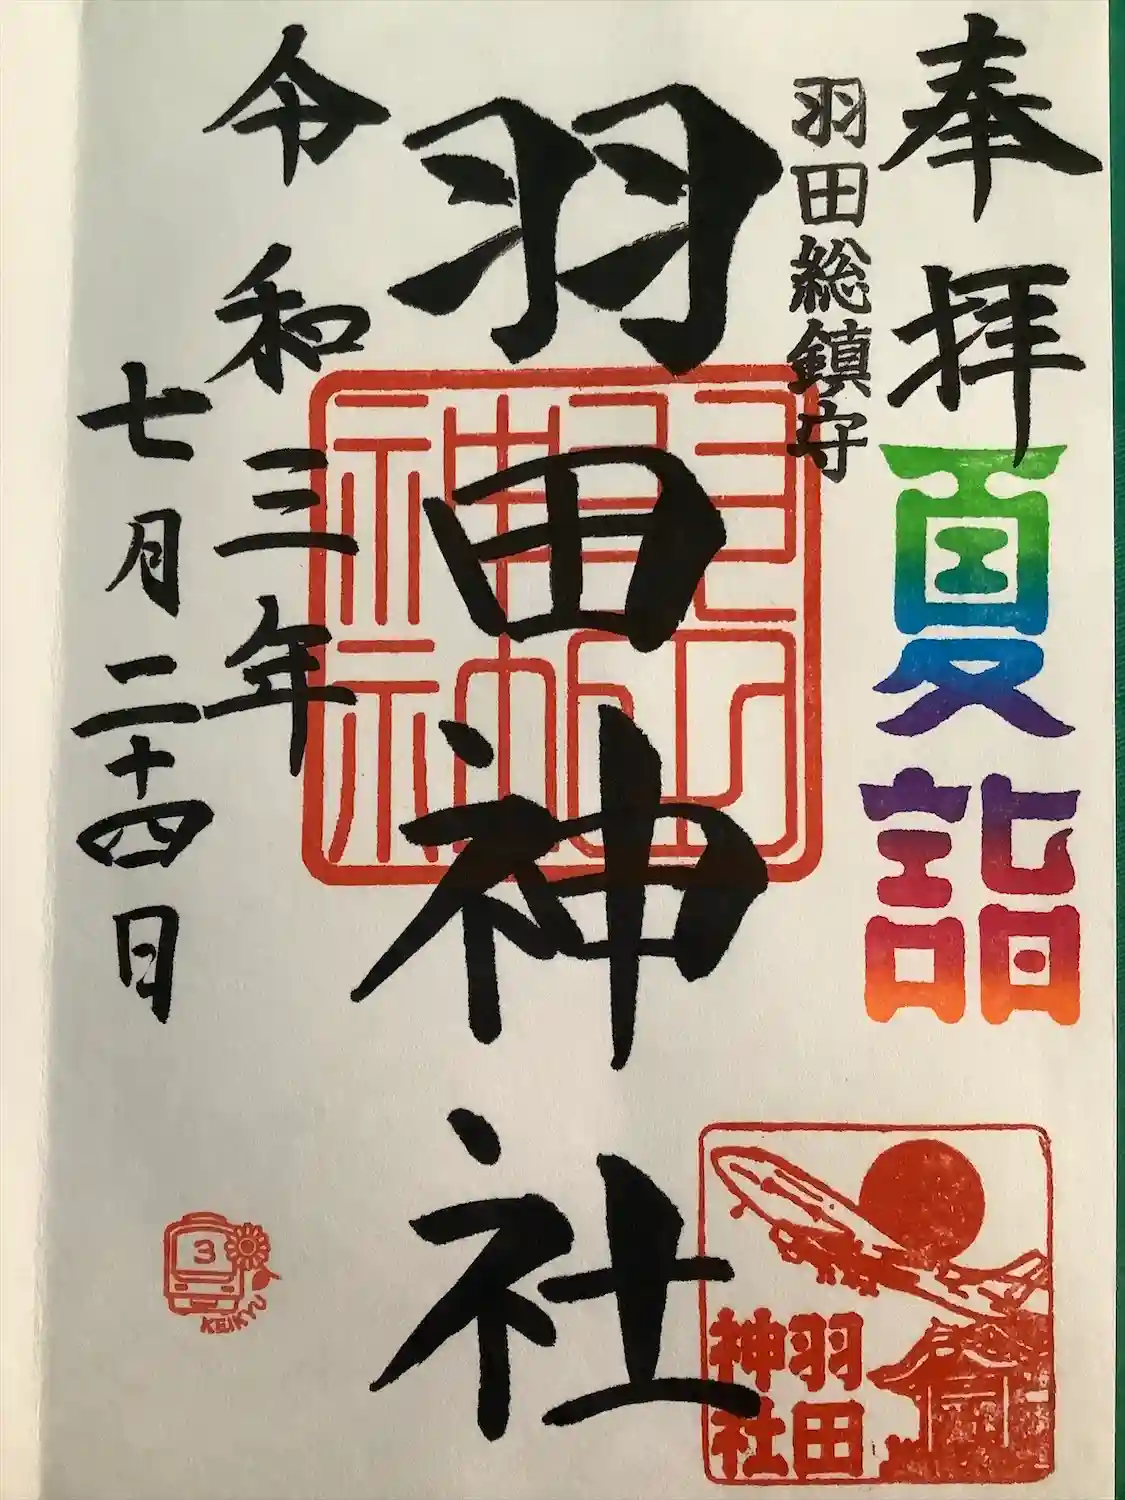 奉拝
夏詣
羽田総鎮守
羽田神社
令和三年
七月二十四日
羽田
神社
3
KEIKYU